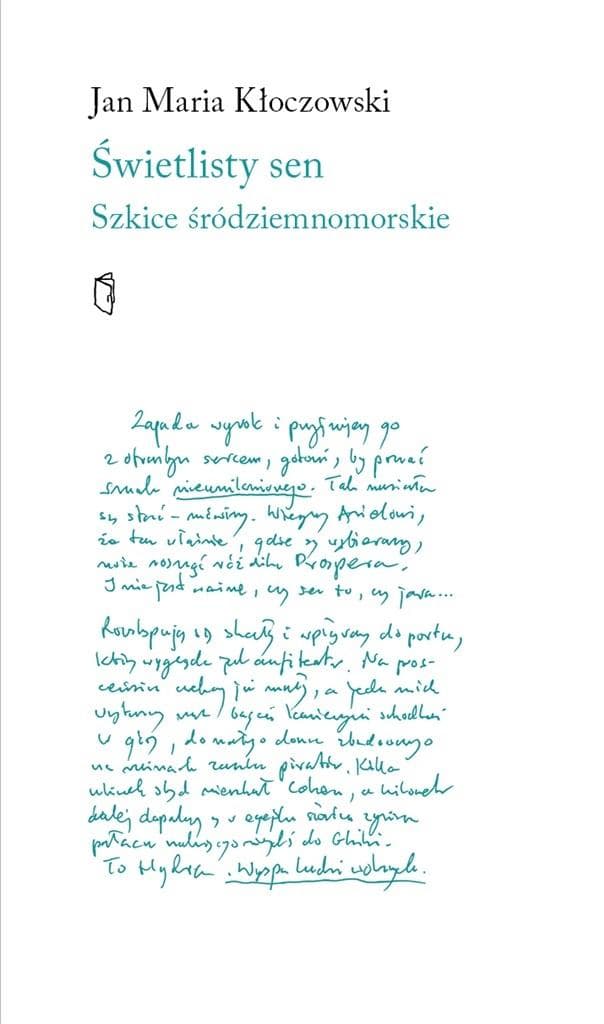 Jan Maria Kłoczowski
Świetlisty sen
Szkice śródziemnomorskie
Zapada wyrok i przyjmijmy go
z otwartym sercem, gotowi, by poznać
smak nieuniknionego. Tak musiało
się stać – mówimy. Wierzymy Arielowi,
że tam właśnie, gdzie się wybieramy,
może różdżka Prospera.
I nie jest ważne, czy sen to, czy jawa...
Rozstępują się skały i wpływamy do portu,
który wygląda jak amfiteatr. Na
już, a jeden z nich
kamiennymi schodkami
w górę, do małego domu zbudowanego
na ruinach zamku piratów. Kilka
uliczek stąd mieszkał Cohen, a kilometr
dalej
pałacu należącego niegdyś do Ghiki.
To Hydra. Wyspa ludzi wolnych.